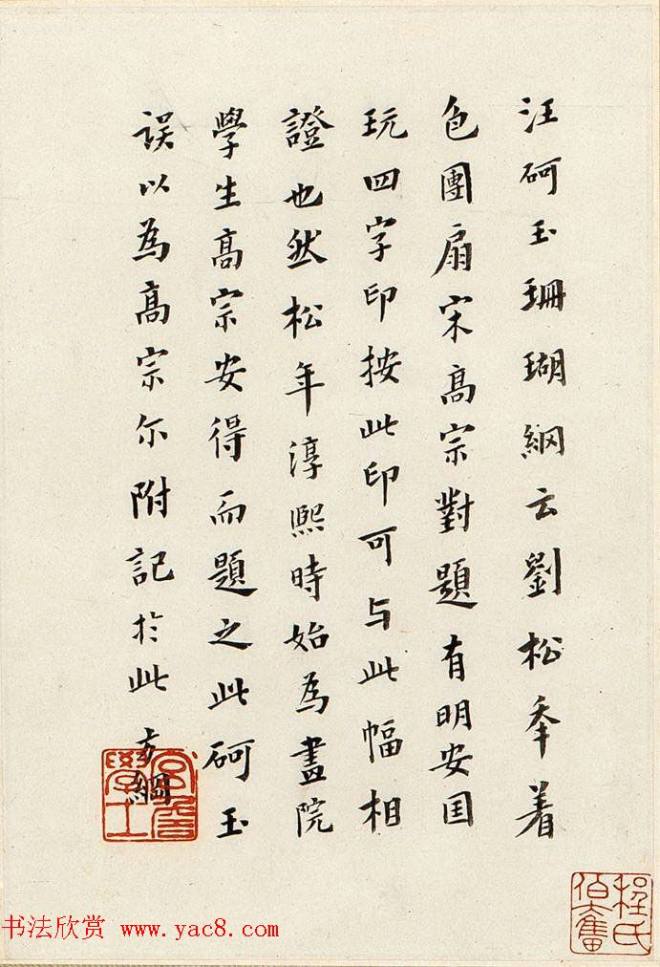 汪砢玉珊瑚網云劉松秊着
色團扇宋高宗對題有明安囯
玩四字印按此印可与此幅相
證也然松年淳熙時始為畫院
學生高宗安得而題之此砢玉
誤以為高宗尔附記於此 方綱
宮詹學士
程氏伯奮
书法欣赏 www.yac8.com